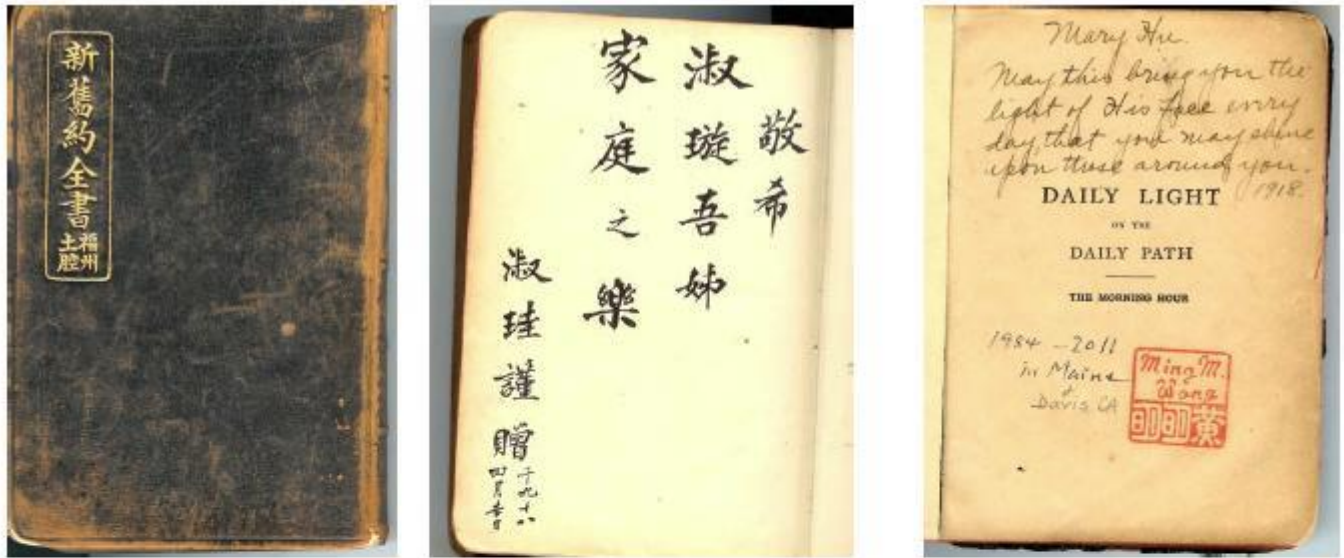 新舊約全書
福州
土腔
敬希
淑璇吾姊
家庭之樂
淑珪謹贈
Mary Hu.
May this bring you the
light of His face every
day that you may shine
upon those around you.
1918.
DAILY LIGHT
ON THE
DAILY PATH
THE MORNING HOUR
1984 - 2011
in Maine
&
Davis CA
Ming M.
Wong
黃明明